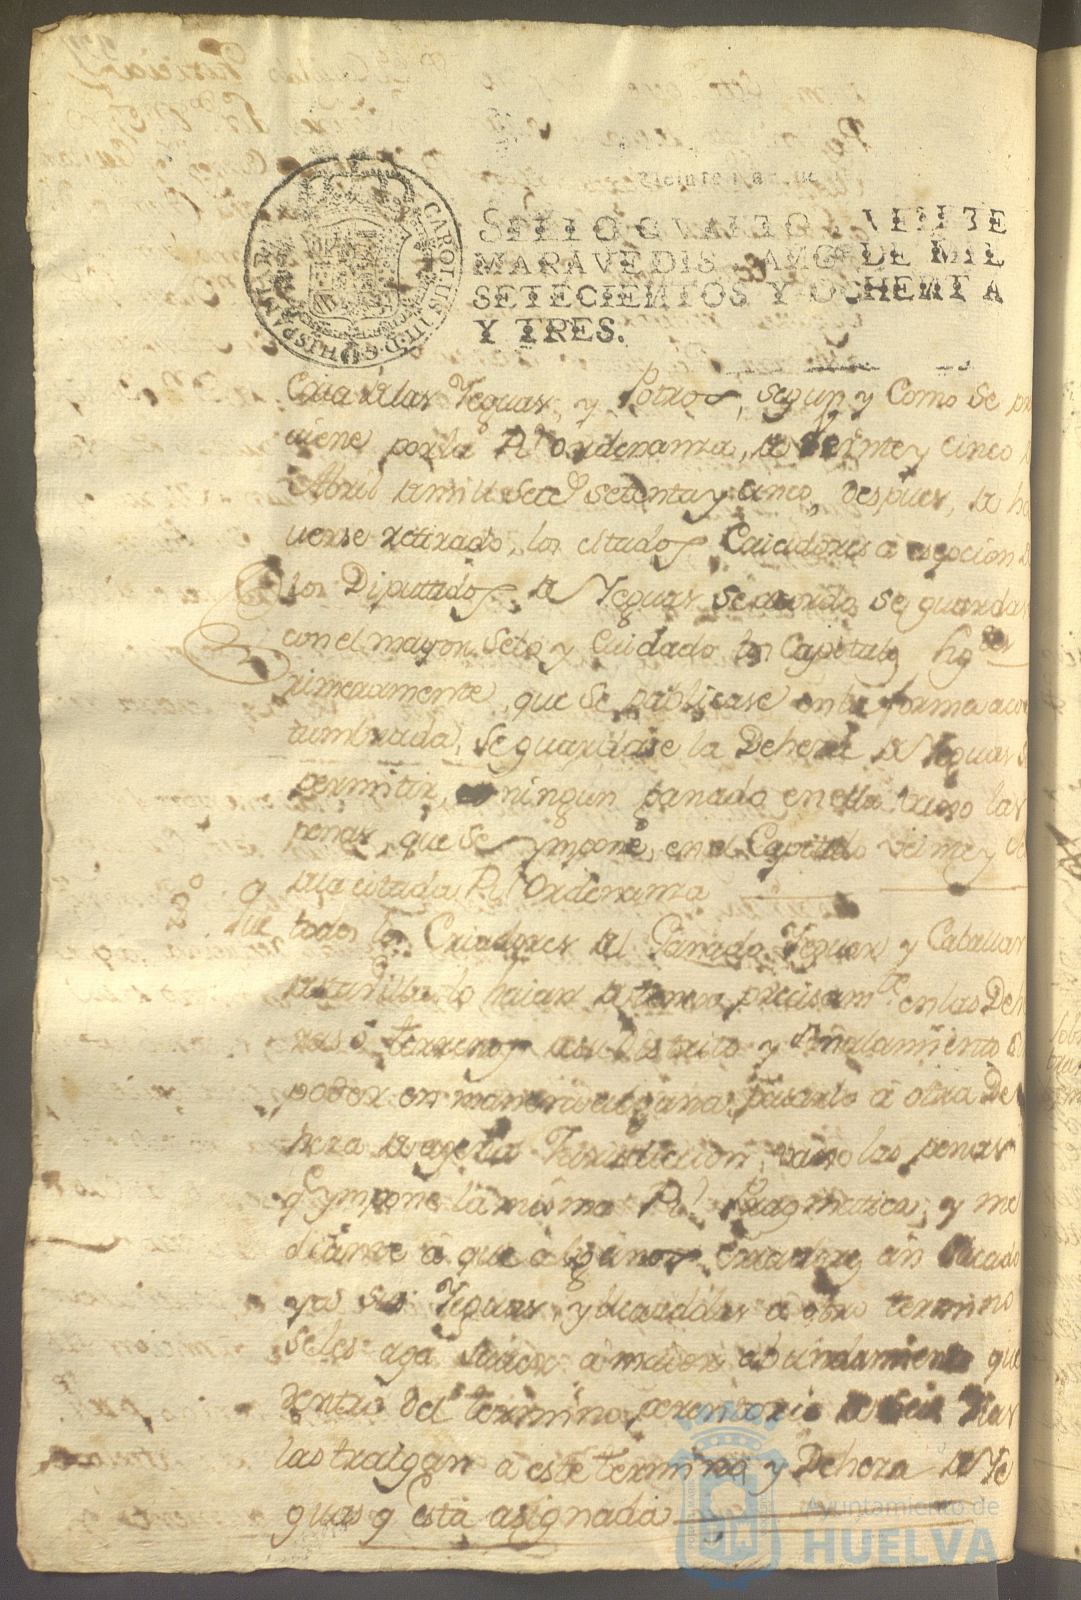 Veinte marave
SELLO QVARTO, VEINTE
MARAVEDIS, AÑO DE MIL
SETECIENTOS Y OCHENTA
Y TRES.
CAROLUS III D G HISPANIAR
Cria de las Yeguas, y Potros, segun y Como se pre
viene por la Rl Ordenanza, de veinte y cinco de
Abril de mill Setes setenta y cinco, despues, de ha
verse retirado, los citados Criadores a esepcion de
los Diputados de Yeguas se acordo, se guardar
con el mayor Selo y Cuidado los Capitulos sigtes
rimeramente, que se publicase en la forma acos
tumbrada, se guardase la Dehesa de Yeguas s
permitir, ningun ganado en ella bajo las
penas, que se ympone, en el Capitulo
de la citada Rl Ordenanza
2o que todos los Criadores del Ganado Yeguar y Caballar
de esta Villa lo haian de tener precisamte en las Dehe
sas o terrenos de su distrito y señalamiento
poder en manera alguna pasarlo a otra De
hesa de agena Jurisdiccion, bajo las penas
q Ympone la misma Rl Pragmatica, y me
diante a que algunos Criadores an sacado
sus Yeguas, y a otro termino
se les aga saver a maior abundamiento que
dentro del termino perentorio de seis dias
las traigan a este termino y Dehesa de Ye
guas q Esta asignada
Ayuntamiento de
HUELVA